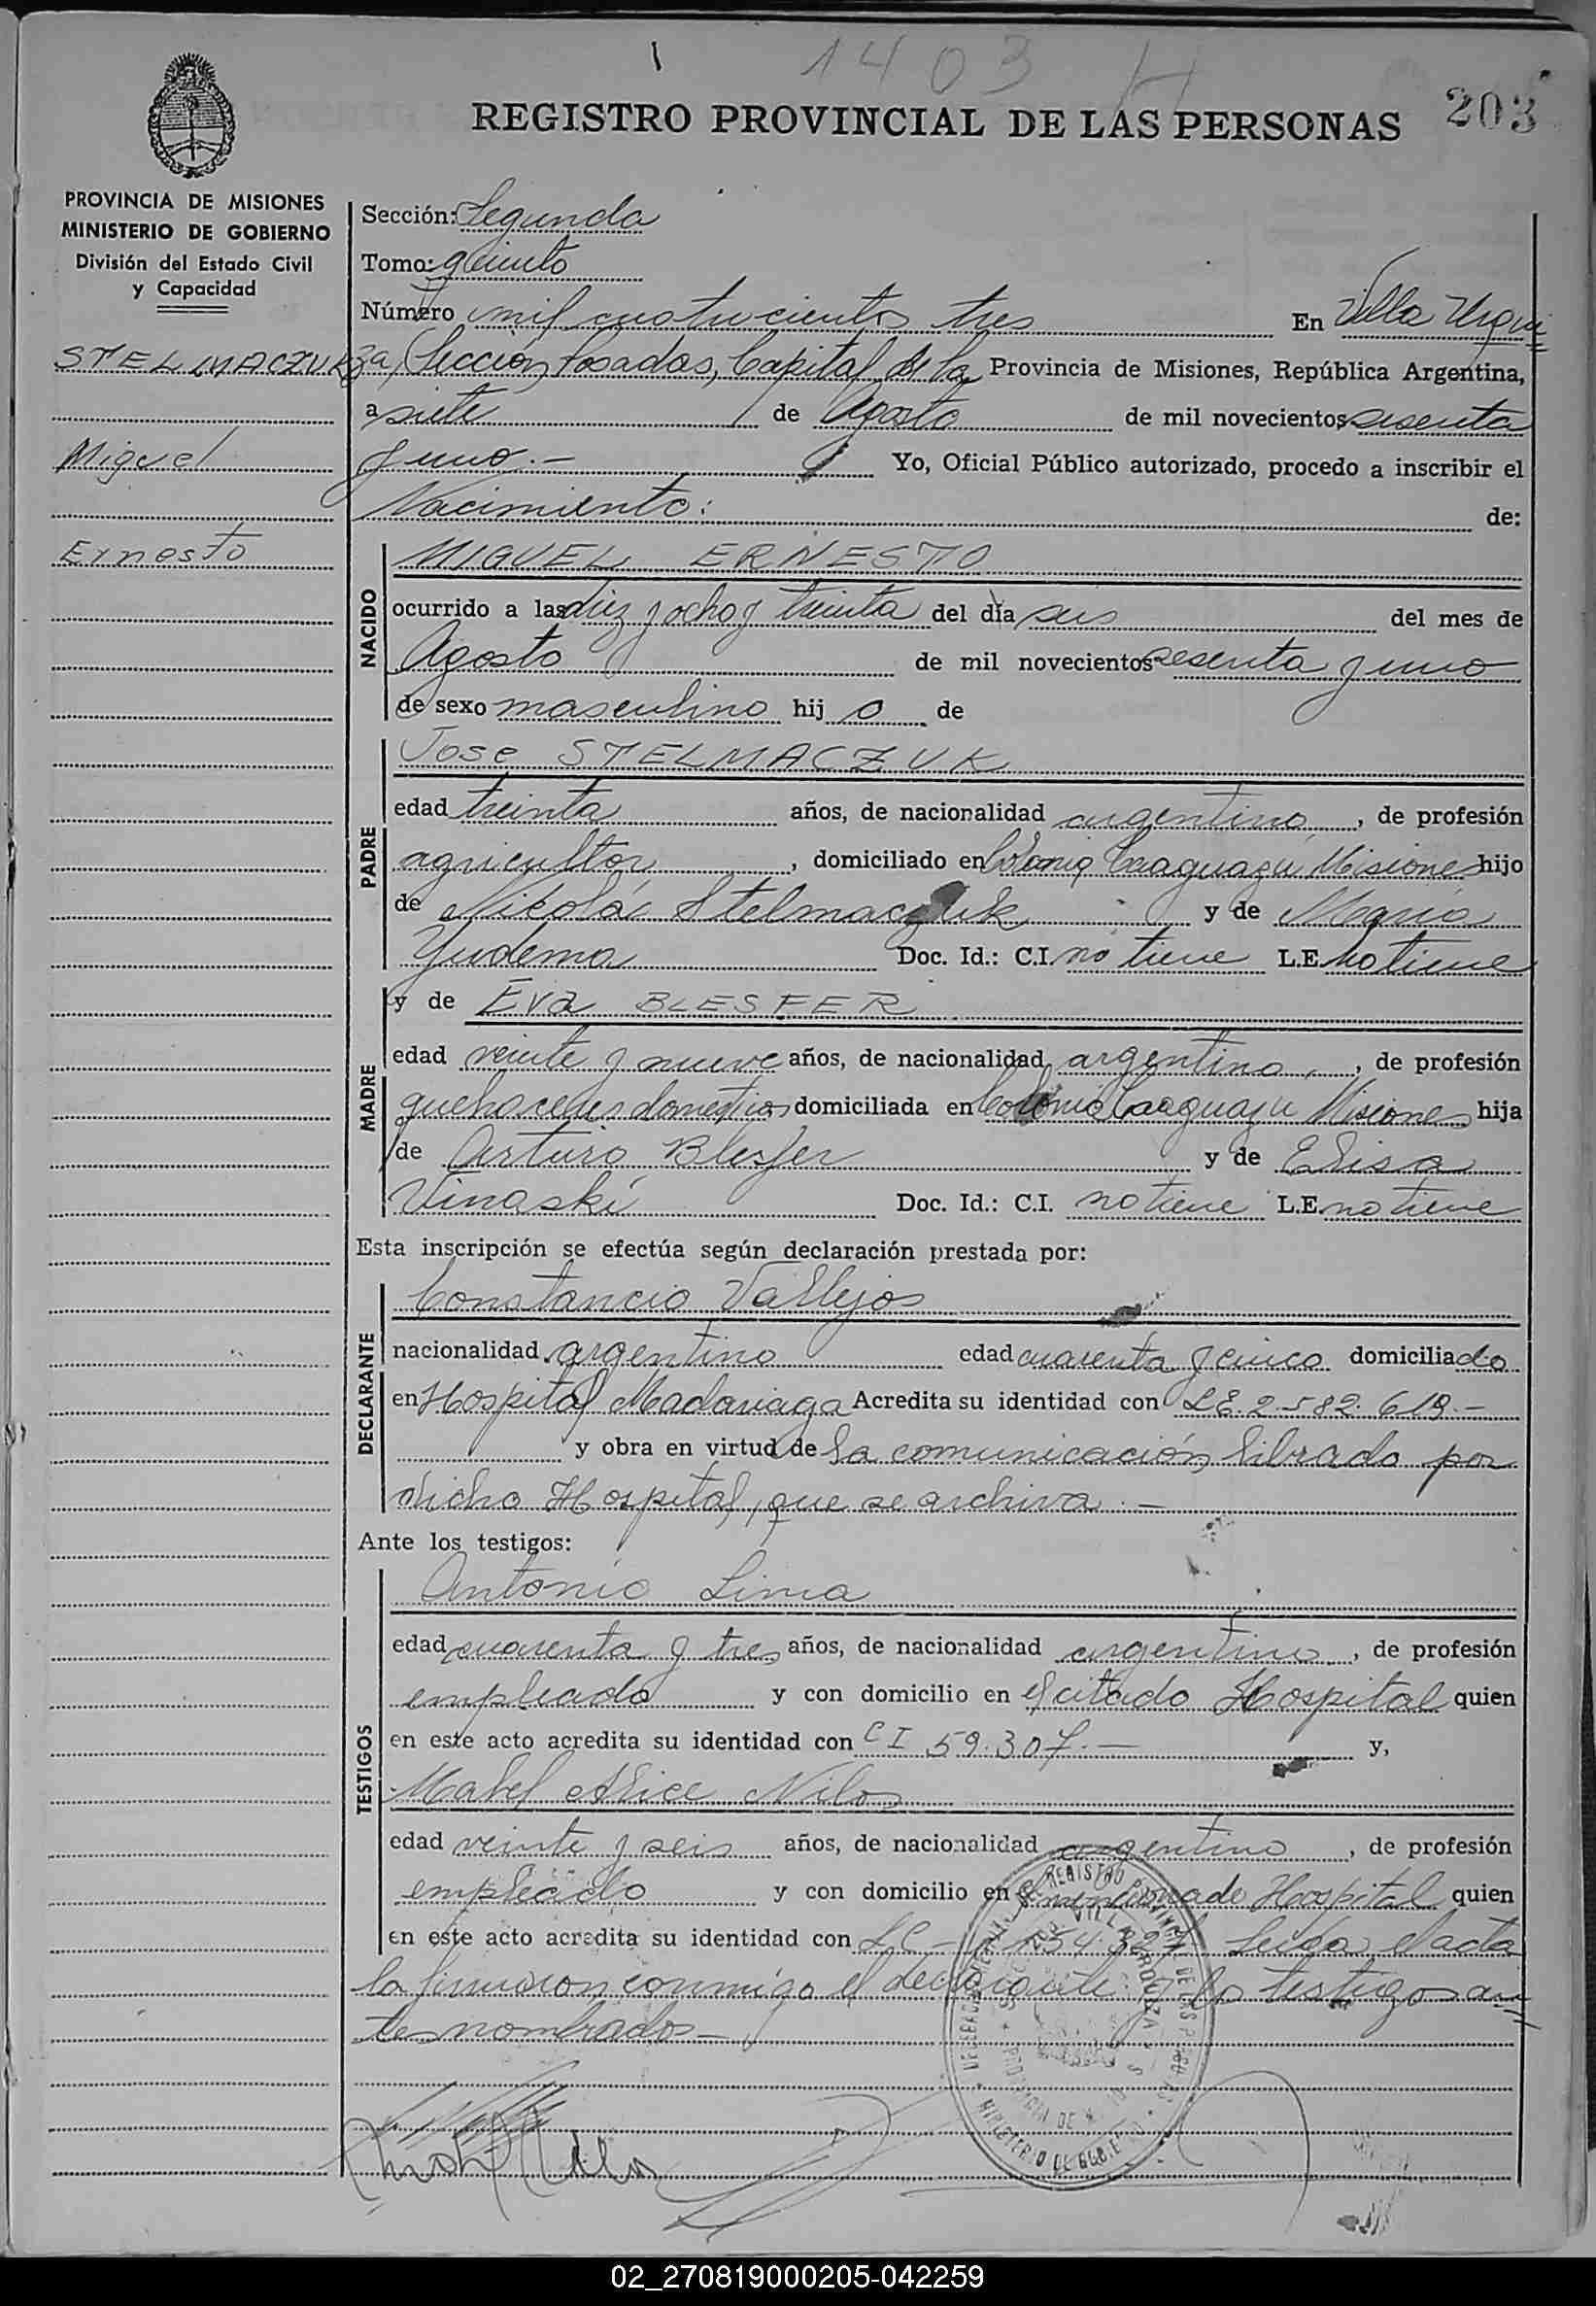 1403 H
REGISTRO PROVINCIAL DE LAS PERSONAS 203
PROVINCIA DE MISIONES
MINISTERIO DE GOBIERNO
División del Estado Civil
y Capacidad
STELMACZUK
Miguel
Ernesto
Sección: Segunda
Tomo: quinto
Número mil cuatrucientos tres En Villa Urqui
za, Sección Posadas, Capital de la Provincia de Misiones, República Argentina,
a siete de Agosto de mil novecientos sesenta
y uno.- Yo, Oficial Público autorizado, procedo a inscribir el
Nacimiento: de:
NACIDO
MIGUEL ERNESTO
ocurrido a las diez y ocho y treinta del día seis del mes de
Agosto de mil novecientos sesenta y uno
de sexo masculino hij o de
PADRE
Jose STELMACZUK
edad treinta años, de nacionalidad argentino, de profesión
agricultor, domiciliado en Colonia Caaguazú Misiones hijo
de Nikolás Stelmaczuk y de María
Yudema Doc. Id.: C.I. no tiene L.E. no tiene
MADRE
y de Eva BLESFER
edad veinte y nueve años, de nacionalidad argentina, de profesión
quehaceres domesticos domiciliada en Colonia Caaguazu Misiones hija
de Arturo Blesfer y de Elisa
Vinaski Doc. Id.: C.I. no tiene L.E. no tiene
Esta inscripción se efectúa según declaración prestada por:
DECLARANTE
Constancio Vallejos
nacionalidad argentino edad cuarenta y cinco domiciliado
en Hospital Madariaga Acredita su identidad con LE. 2.582.619.-
y obra en virtud de la comunicación librada por
dicho Hospital, que se archiva.-
Ante los testigos:
TESTIGOS
Antonio Lima
edad cuarenta y tres años, de nacionalidad argentino, de profesión
empleado y con domicilio en el citado Hospital quien
en este acto acredita su identidad con CI 59.307.- y,
Mabel Alice Nilos
edad veinte y seis años, de nacionalidad argentino, de profesión
empleado y con domicilio en el mencionado Hospital quien
en este acto acredita su identidad con LC Leída el acta
la firmaron conmigo el declarante y los testigos an
tes nombrados-
REGISTRO PROVINCIAL DE LAS PERSONAS
MINISTERIO DE GOBIERNO
02_270819000205-042259